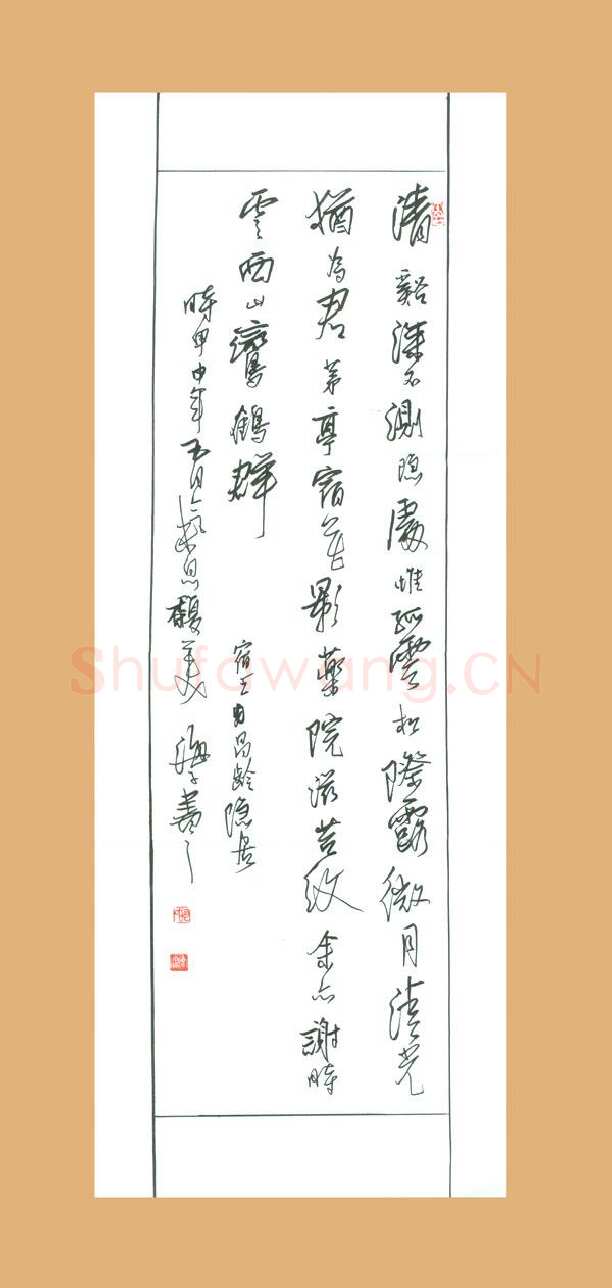 清谿深不測隐處惟孤雲松際露微月清光
猶為君茅亭宿花影藥院滋苔纹余亦謝時
雲西山鸞鶴群
宿王昌龄隐居
時甲申年五月 書之
Shufawang.CN